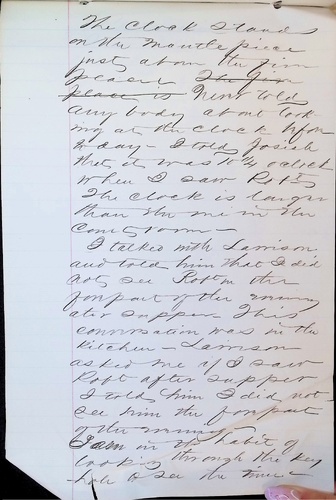 The Clock Stands
on the Mantle piece
just above the fire
place. The fire
place is Never told
any body about look-
ing at the clock before
to day - I told Josiah
that it was 10 1/4 oclock
when I saw Robt
The clock is larger
than the one in the
Court room -
I talked with Larrison
and told him that I did
not see Robt in the
forepart of the evening
after supper - This
conversation was in the
Kitchen - Larrison
asked me if I saw
Robt after supper
I told him I did not
see him the forepart
of the evening
I am in the habit of
looking through the key
hole to see the time